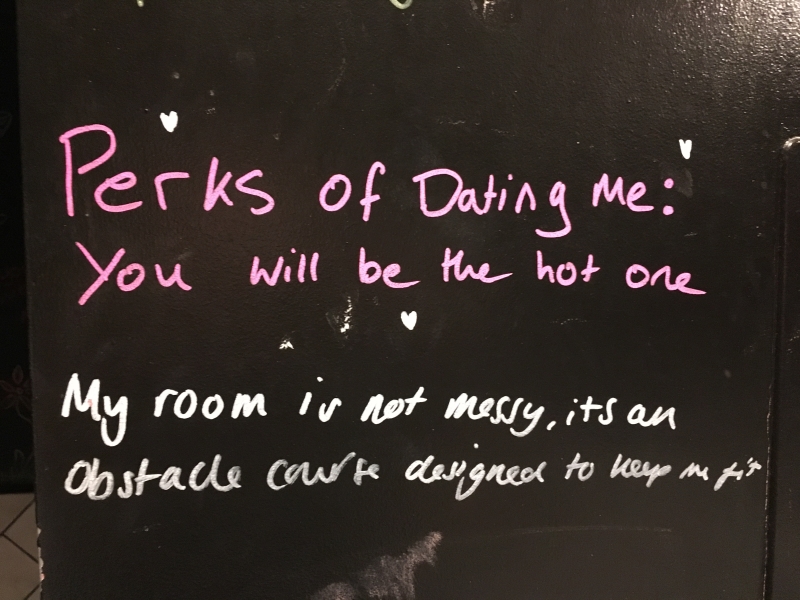 Perks of Dating me:
You will be the hot one
My room is not messy, its an
obstacle course designed to keep me fit